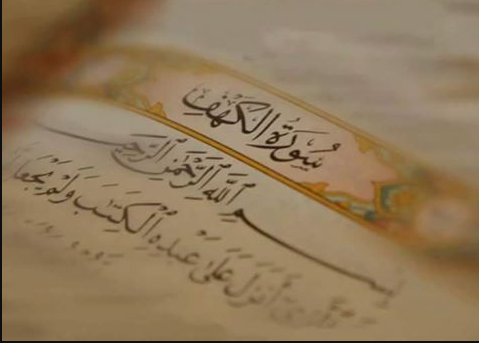 سُورَةُ الْكَهْفِ
بِسْمِ ٱللَّهِ ٱلرَّحْمَٰنِ ٱلرَّحِيمِ
أَنزَلَ عَلَىٰ عَبْدِهِ ٱلْكِتَٰبَ وَلَمْ يَجْعَل